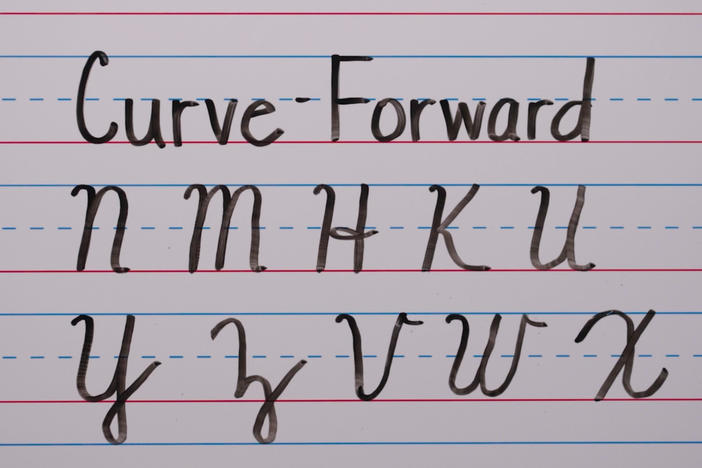 Curve-Forward
N M H K U
Y Z V W X